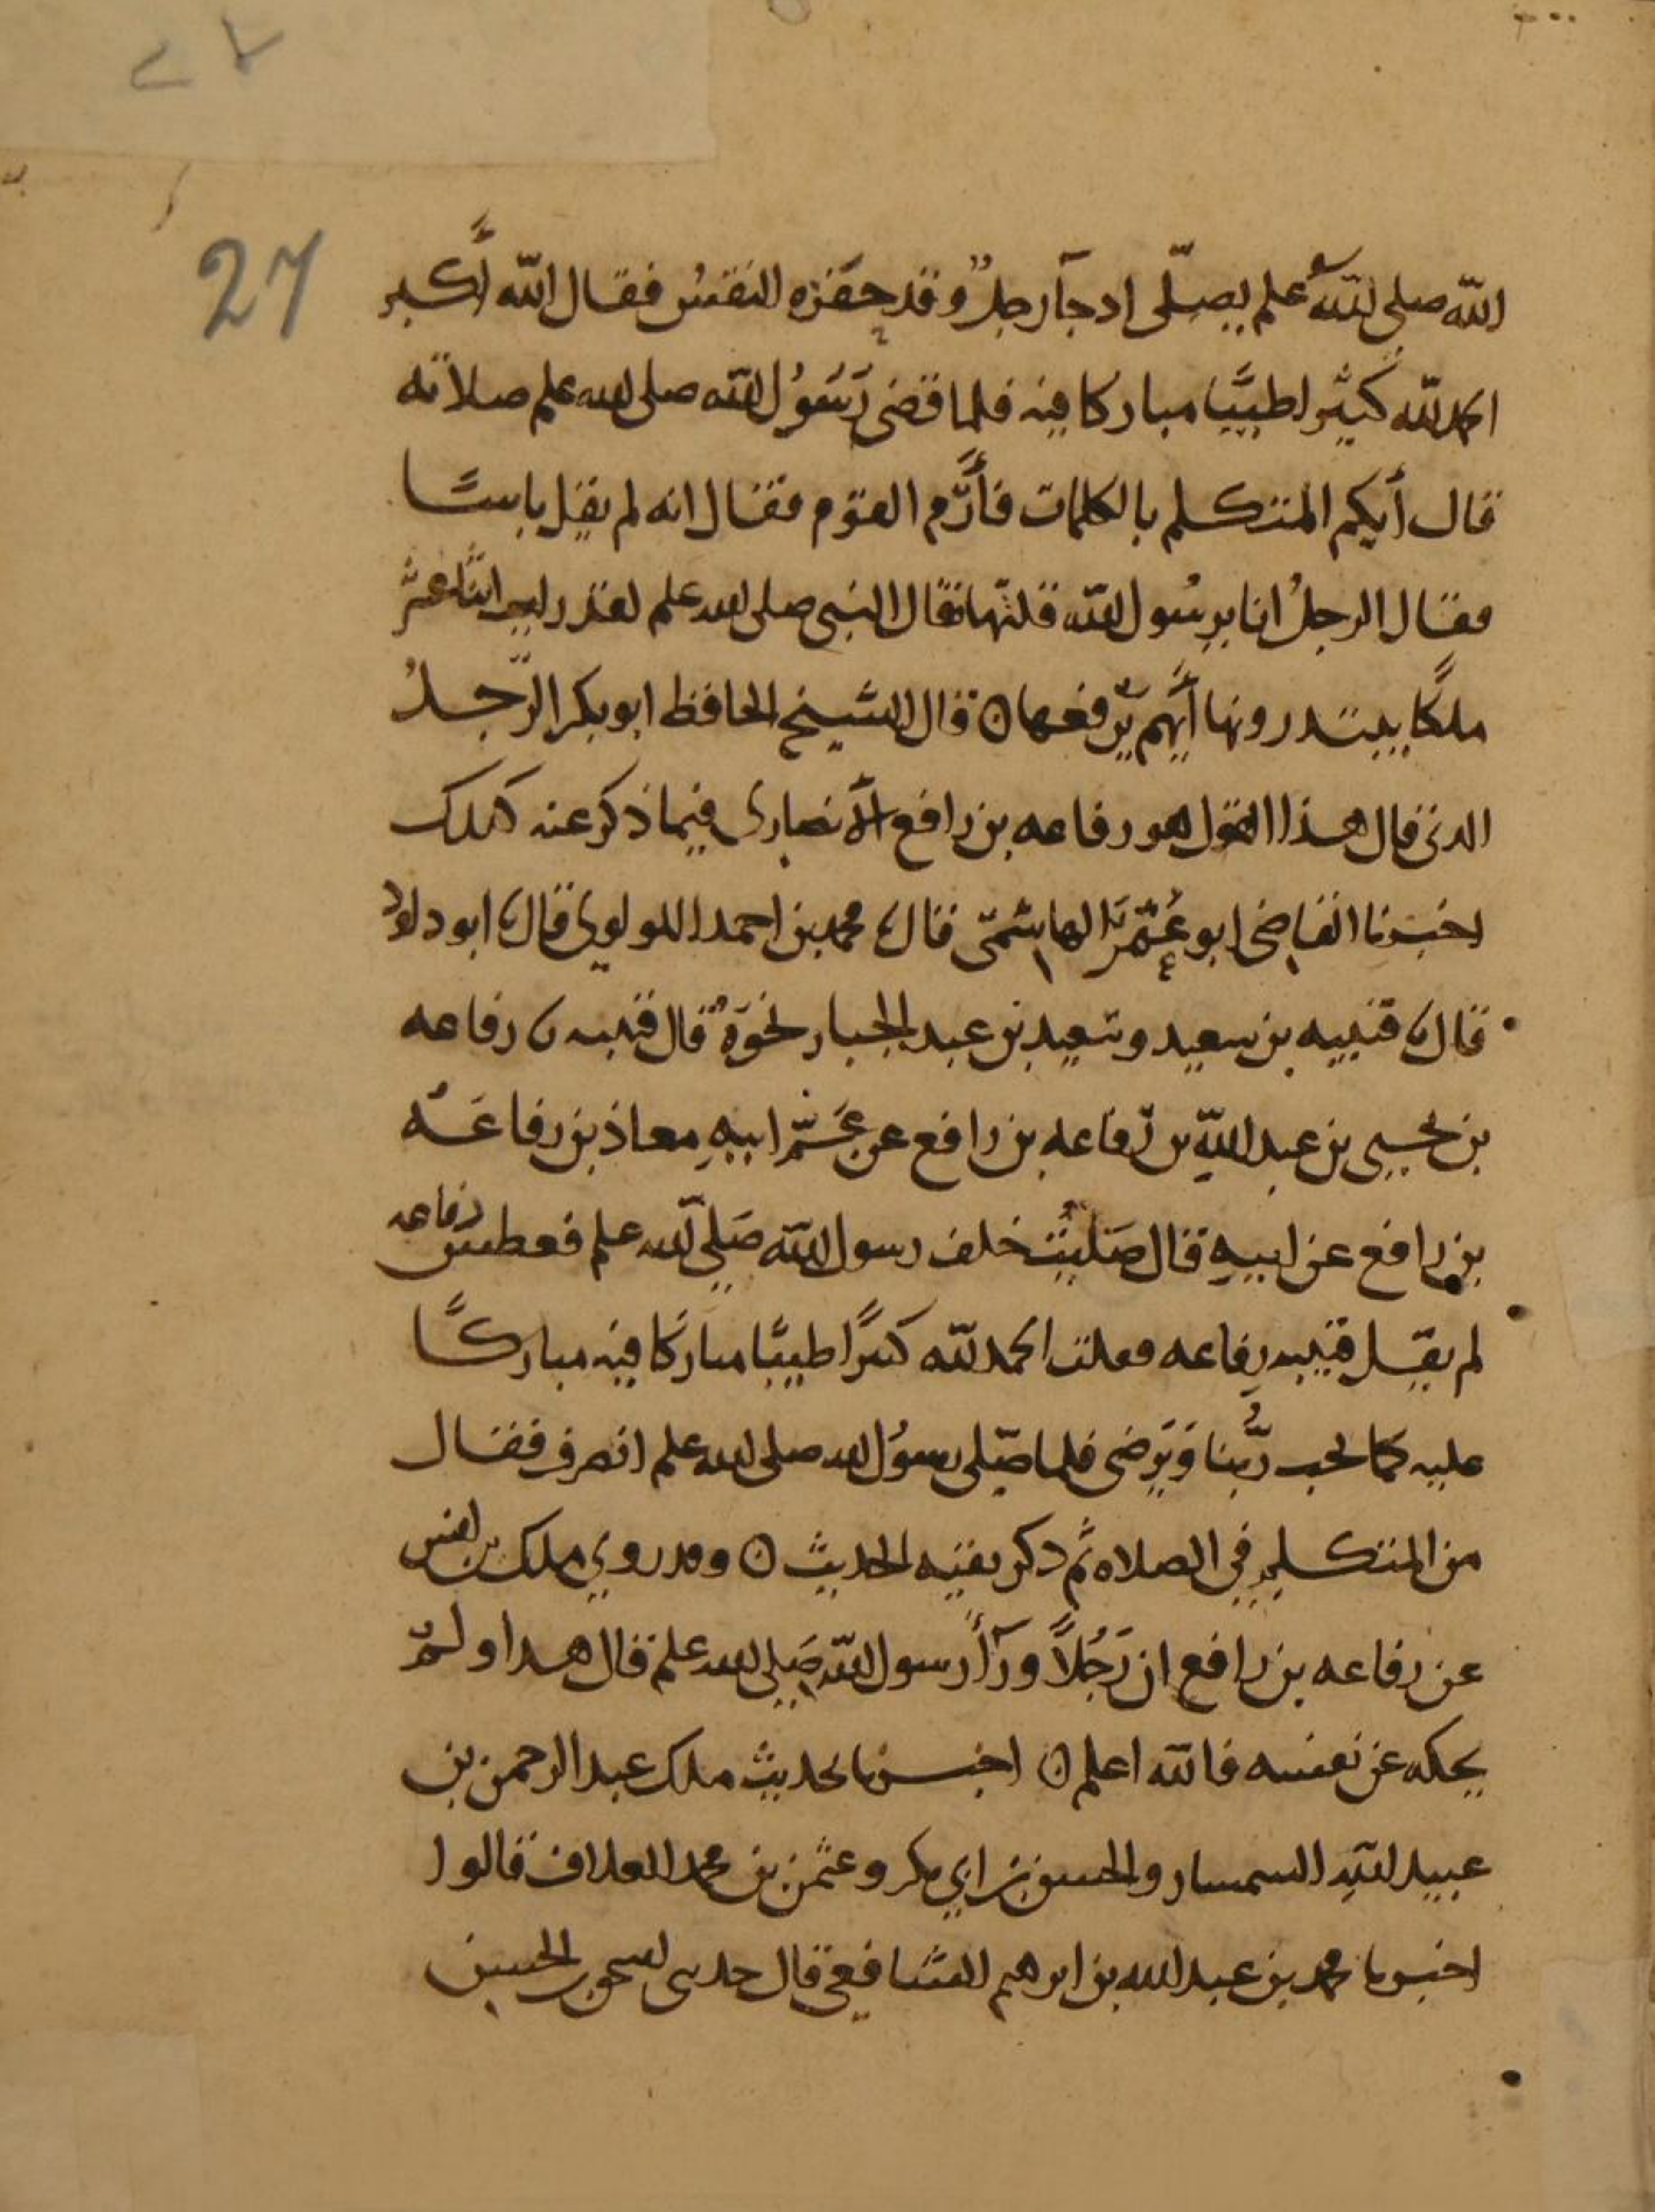 ٢٧
27
الله صلى الله علىه وسلم يصلّى اد جآ رجلٌ وقد حفزه النفسُ فقال الله أكبر
الحمد لله كثيرا طيبًا مباركا فيه فلما قضى رَسُوُل الله صلى الله علىه وسلم صلاته
قال أيكم المتكلم بالكلمات فأرَّم القوم فقال انه لم يقل باسًا
فقال الرجلُ انا يرسُول الله قلتها فقال النبي صلى الله علىه وسلم لقد رايت اثنا عشر
ملكًا يبتدرونها أيُّهم يرفعها ٥ قال الشيخ الحافظ ابو بكر الرّجلُ
الدى قال هذا القول هو رفاعه بن رافع الأنصارى فيما ذكر عنه كذلك
اخبرنا القاضى ابو عُمَر الهاشمّى قال ثنا محمد بن احمد اللولوى قال ثنا ابو داود
قال ثنا قتيبه بن سعيد وسَعيد بن عبد الجبار نحوَهُ قال قتيبه ثنا رفاعه
بن يحيى بن عبد اللهِ بن رّفاعه بن رافع عن عَمّ ابيهِ معاذ بن رفاعَه
بن رافع عن ابيهِ قال صَليْتُ خلف رسول الله صَلى الله علىه وسلم فعطس رفاعه
لم يقل قتيبه رفاعه فقلت الحمد لله كثيرًا طيبًا مباركًا فيه مباركًا
عليه كما يحب ربُّنا وَيَرضى فلما صّلى رسوُل الله صلى الله علىه وسلم انصرف فقال
من المتكلم فى الصلاه ثم دكر بقيه الحديث ٥ وقد روى ملك بن انس
عن رفاعه بن رافع ان رَجُلاً ورآء رسول الله صَلى الله علىه وسلم قال هدا ولم
يحكه عن نفسه فالله اعلم ٥ اخبرنا بحديث ملك عبد الرحمن بن
عبيد اللهِ السمسار والحسن بن ابي بكر وعثمن بن محمد العلاف قالوا
اخبرنا محمد بن عبد الله بن ابرهيم الشافعي قال حدثنى اسحق بن الحسن